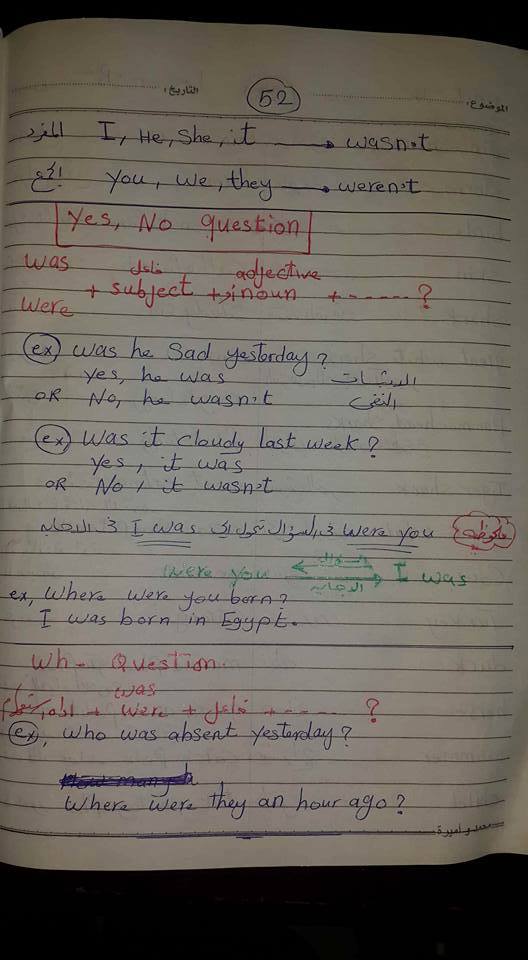 الموضوع: 52 التاريخ:
المفرد I, He, She, it → wasn't
الجمع you, we, they → weren't
Yes, No question
was فاعل adjective
+ subject + أو noun + ------ ?
were
ex) was he Sad yesterday?
yes, he was الاثبات
OR No, he wasn't النفى
ex) Was it cloudy last week?
yes, it was
OR No, it wasn't
ملحوظة were you فى السؤال تحول إلى I was فى الاجابه
were you السؤال الاجابه I was
ex, Where were you born?
I was born in Egypt.
Wh- Question
was
+ were + فاعل + ------ ?
ex), who was absent yesterday?
Where were they an hour ago?